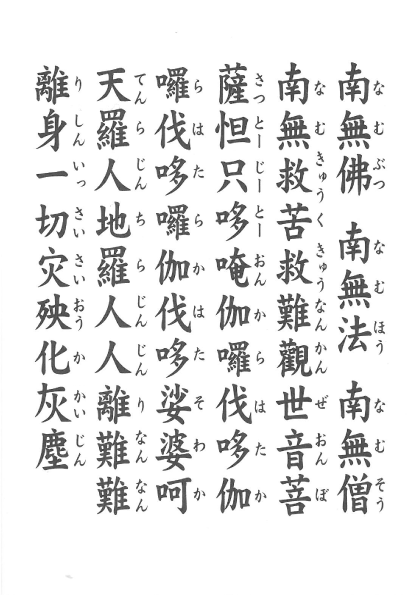 南無佛　南無法　南無僧
なむぶつ　なむほう　なむそう
南無救苦救難觀世音菩
なむきゅうくきゅうなんかんぜおんぼ
薩怛只哆唵伽囉伐哆伽
さつとーじーとーおんからはたか
囉伐哆囉伽伐哆娑婆呵
らはたらかはたそわか
天羅人地羅人人離難難
てんらじんちらじんじんりなんなん
離身一切灾殃化灰塵
りしんいっさいさいおうかかいじん